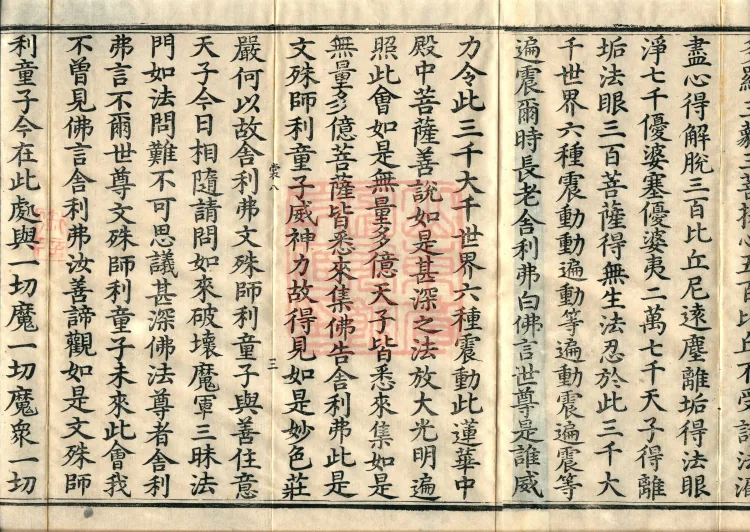 羅三藐三菩提心五百比丘不受諸法漏
盡心得解脫三百比丘尼遠塵離垢得法眼
淨七千優婆塞優婆夷二萬七千天子得離
垢法眼三百菩薩得無生法忍於此三千大
千世界六種震動動遍動等遍動震遍震等
遍震爾時長老舍利弗白佛言世尊是誰威
力令此三千大千世界六種震動此蓮華中
殿中菩薩善說如是甚深之法放大光明遍
照此會如是無量多億天子皆悉來集如是
無量多億菩薩皆悉來集佛告舍利弗此是
文殊師利童子威神力故得見如是妙色莊
棠八 三
嚴何以故舍利弗文殊師利童子與善住意
天子今日相隨請問如來破壞魔軍三昧法
門如法問難不可思議甚深佛法尊者舍利
弗言不爾世尊文殊師利童子未來此會我
不曾見佛言舍利弗汝善諦觀如是文殊師
利童子今在此處與一切魔一切魔眾一切